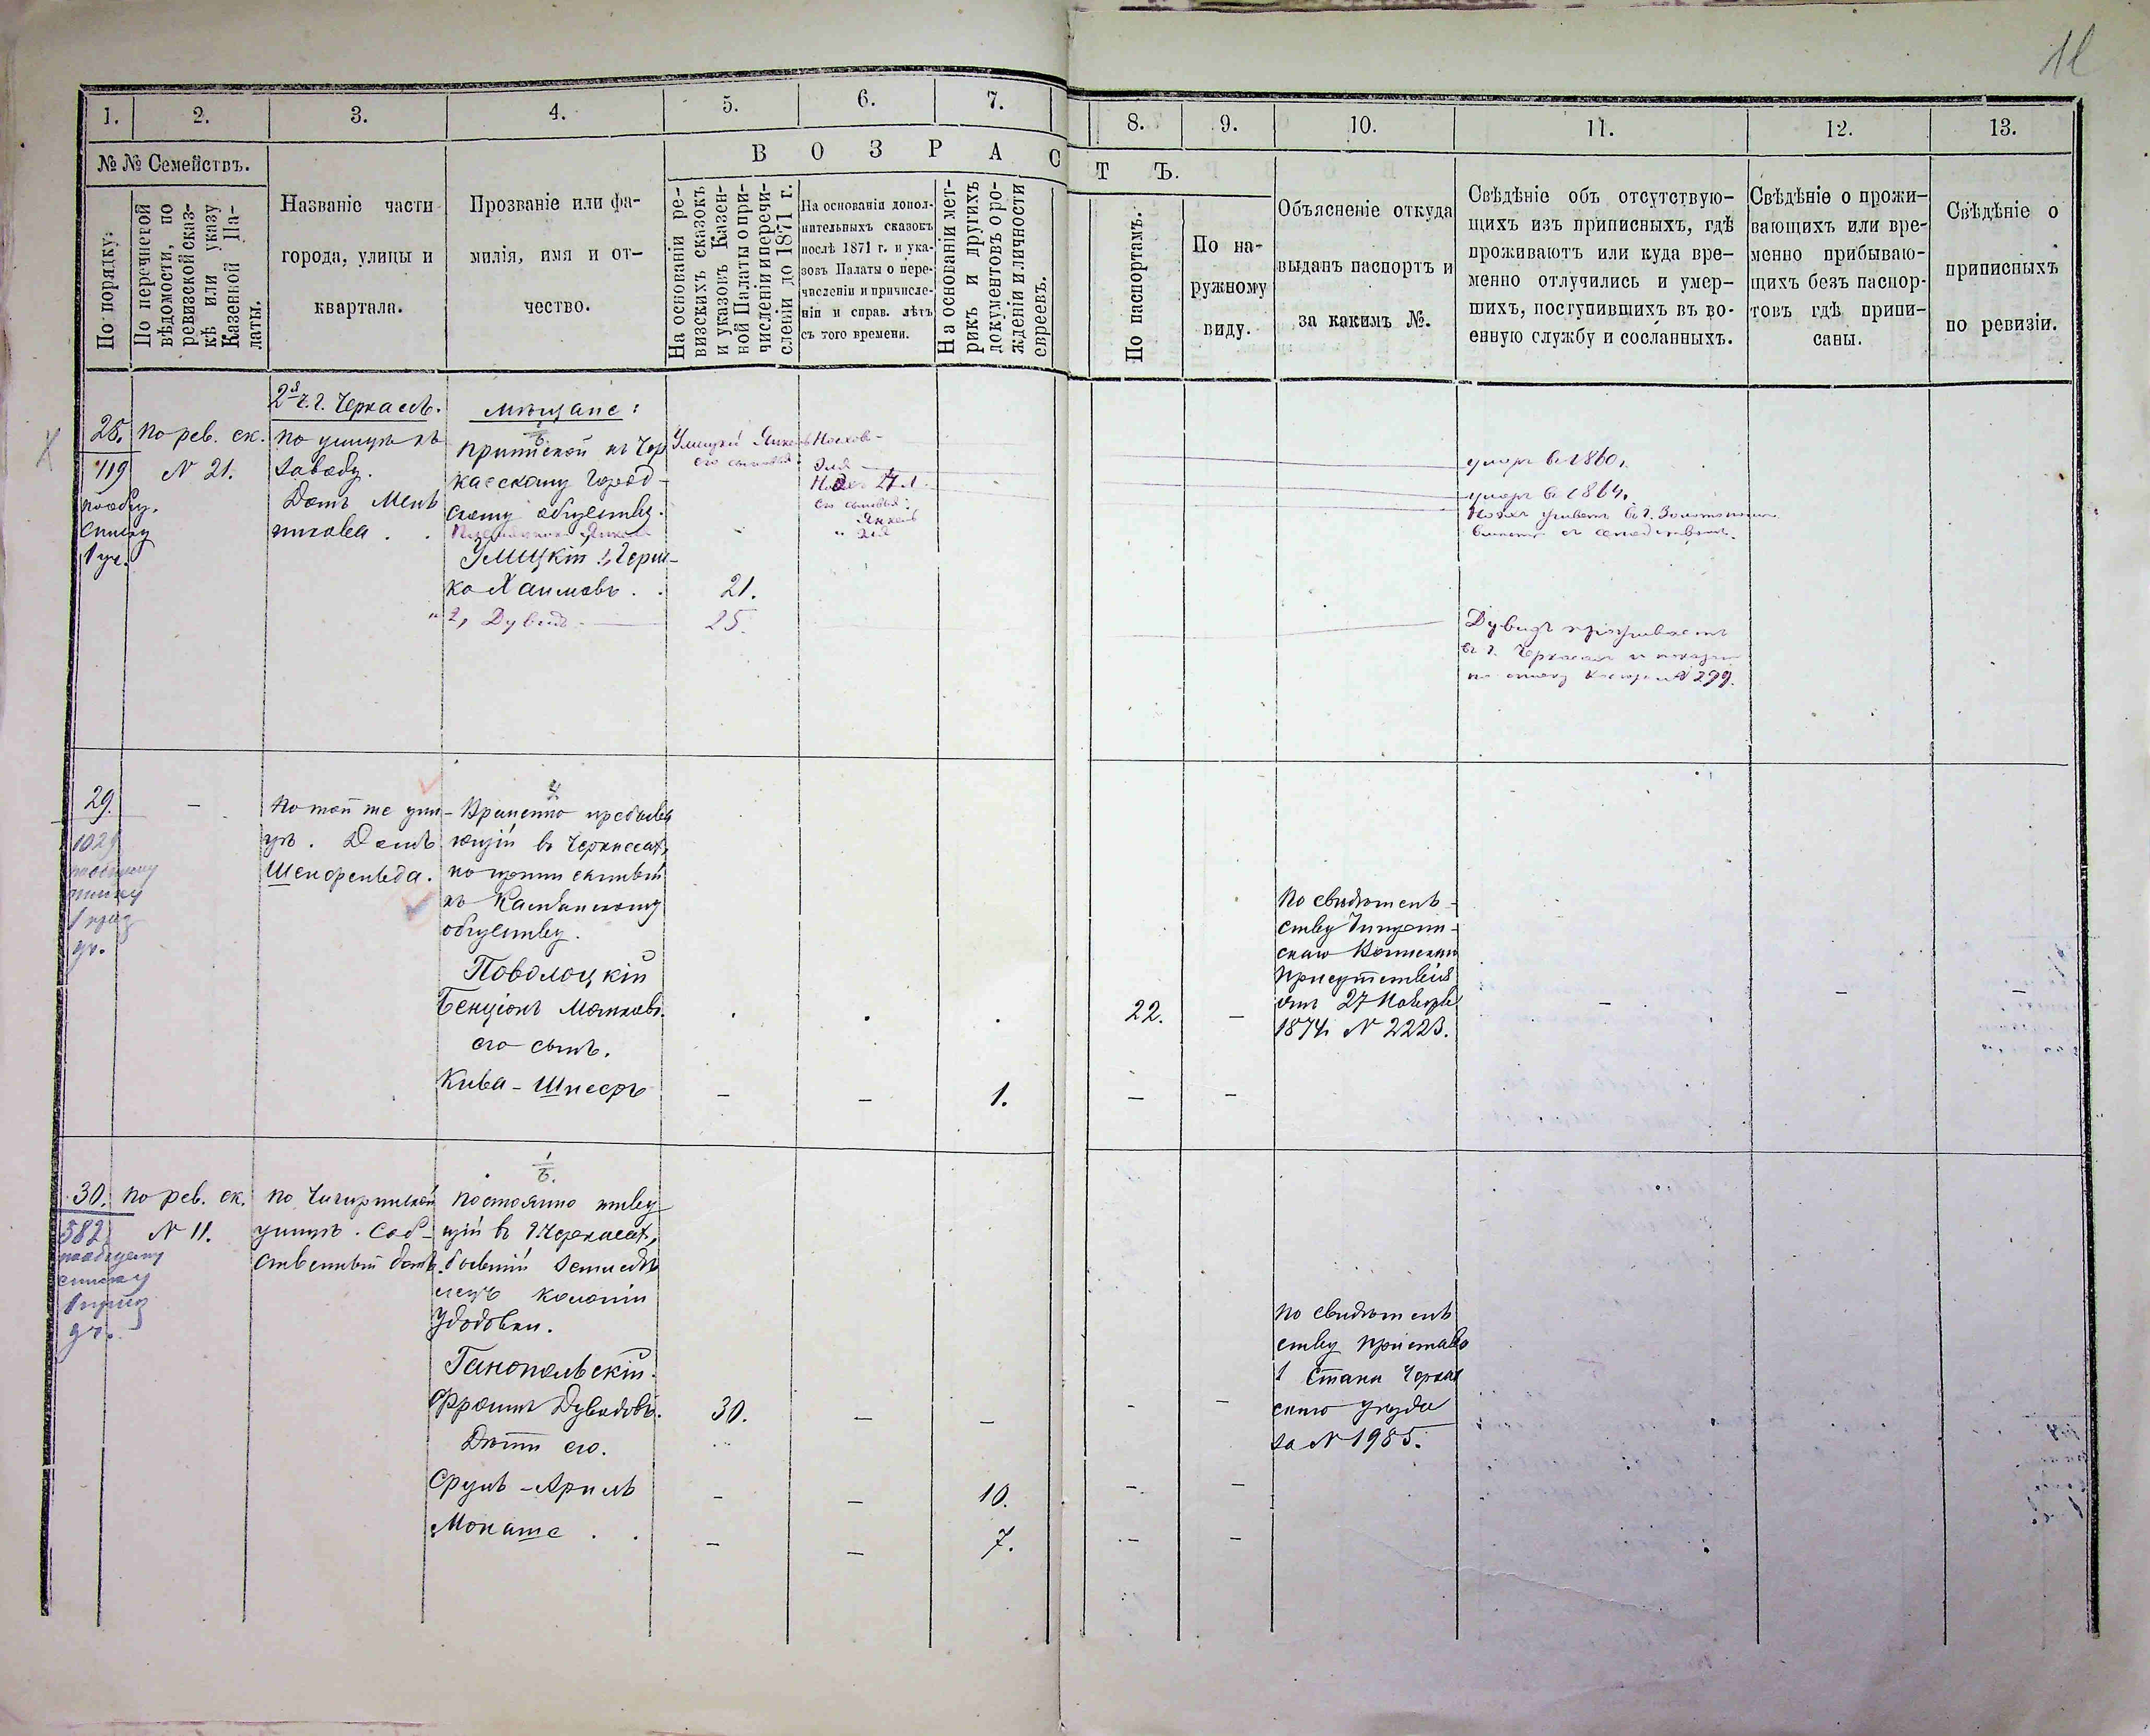 11
1.
2.
3.
4.
5.
6.
7.
8.
9.
10.
11.
12.
13.
№ № Семействъ.
В О З Р А С
Т Ъ.
По порядку.
По перечневой
вѣдомости, по
ревизской сказ-
кѣ или указу
Казенной Па-
латы.
Названіе части
города, улицы и
квартала.
Прозваніе или фа-
милія, имя и от-
чество.
На основаніи ре-
визскихъ сказокъ
и указовъ Казен-
ной Палаты о при-
численіи и перечи-
сленіи до 1871 г.
На основаніи допол-
нительныхъ сказокъ
послѣ 1871 г. и ука-
зовъ Палаты о пере-
численіи и причисле-
ніи и справ. лѣтъ
съ того времени.
На основаніи мет-
рикъ и другихъ
документовъ о ро-
жденіи и личности
евреевъ.
По паспортамъ.
По на-
ружному
виду.
Объясненіе откуда
выданъ паспортъ и
за какимъ №.
Свѣдѣніе объ отсутствую-
щихъ изъ приписныхъ, гдѣ
проживаютъ или куда вре-
менно отлучились и умер-
шихъ, поступившихъ въ во-
енную службу и сосланныхъ.
Свѣдѣніе о прожи-
вающихъ или вре-
менно прибываю-
щихъ безъ паспор-
товъ гдѣ припи-
саны.
Свѣдѣніе о
приписныхъ
по ревизіи.
28.
119
по общ.
списку
1 уч.
По рев. ск.
№ 21.
2я ч. г. Черкассъ.
по улицѣ къ
заводу.
Домъ Мень
шикова
мѣщане:
приписной къ Чер
касскому Город-
скому обществу.
Улицкій 1, Герш-
ко Хаимовъ
2, Дувидъ
Улицкій Янкель Ноехов-
его сыновья:
21.
25.
Эля
Ноехъ 24 л.
его сыновья:
Янкель
" Эля
умеръ въ 1860.
умеръ въ 1864.
Ноехъ живетъ въ г.
съ семействомъ.
Дувидъ проживаетъ
въ г. Черкасахъ и показанъ
№ 299.
29.
1029
по общему
списку
1 приз
уч.
По той же ули-
цѣ. Домъ
Шенфельда.
Временно пребыва
ющій въ Черкассахъ,
къ
обществу.
Поволоцкій
Бенціонъ Мошковъ.
его сынъ.
Кива-Шнееръ
1.
22.
По свидѣтель-
ству Чигирин-
скаго Воинскаго
Присутствія
отъ 27 Ноября
1874 г. № 2223.
30.
582
по общему
списку
1 приз
уч.
По рев. ск.
№ 11.
по Чигиринской
улицѣ. Соб-
ственный домъ.
Постоянно живу
щій въ г. Черкасахъ,
бывшій Земледѣ
лецъ колоніи
Удобовки.
Ганопольскій.
Фроимъ Дувидовъ.
Дѣти его.
Сруль-Ариль
Монаше
30.
10.
7.
По свидѣтель
ству пристава
1 Стана Черкас
скаго уѣзда
за № 1985.